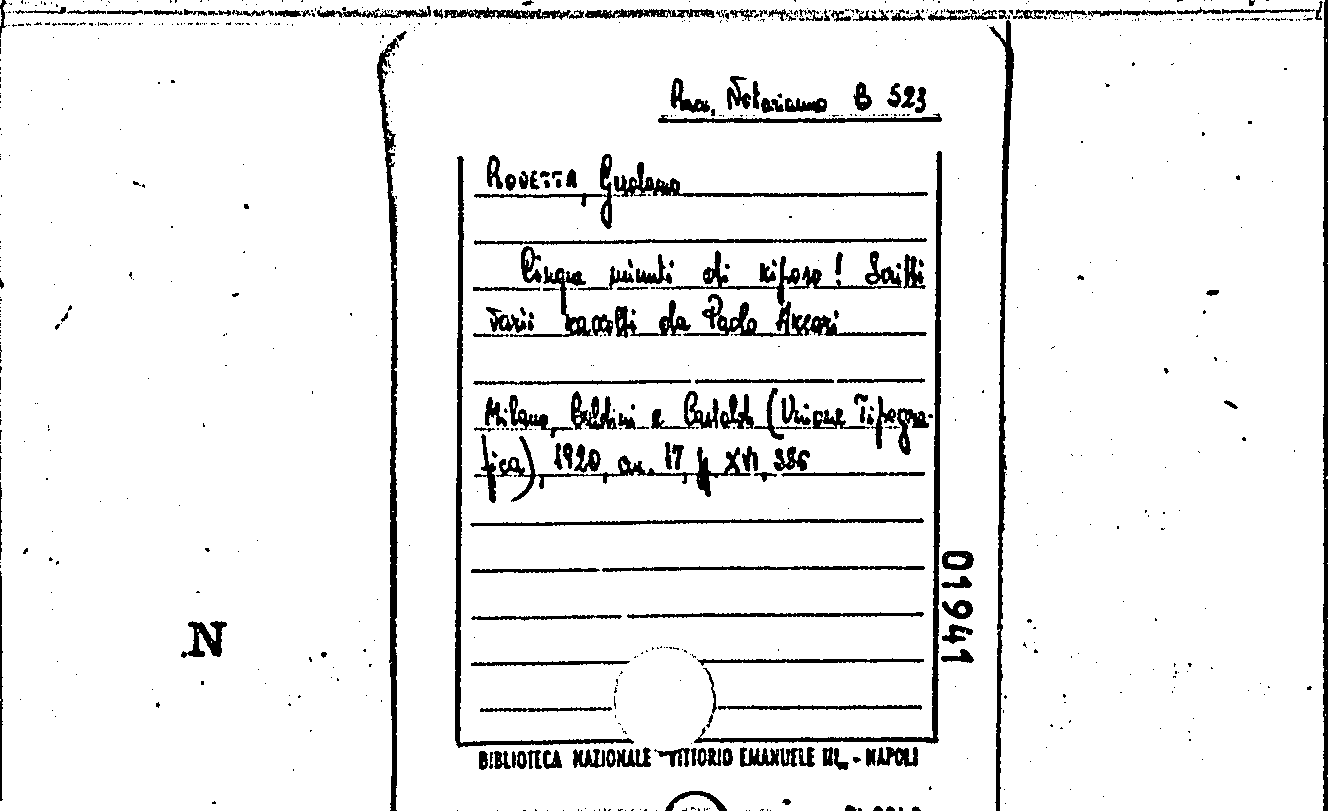 Racc. Notariamo B 523
ROVETTA, Girolamo
Cinque minuti di riposo! Scritti
varii raccolti da Paolo Arcari
Milano, Baldini e Castoldi (Unione Tipogra-
fica), 1920, in. 17, pp XVI, 386
01941
N
BIBLIOTECA NAZIONALE VITTORIO EMANUELE III - NAPOLI